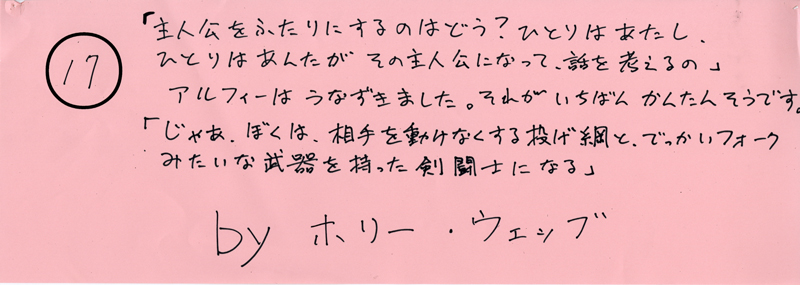 17
「主人公をふたりにするのはどう？ひとりはあたし、
ひとりはあんたが その主人公になって、話を考えるの」
アルフィーは うなずきました。それが いちばん かんたんそうです。
「じゃあ、ぼくは、相手を動けなくする投げ綱と、でっかいフォーク
みたいな武器を持った剣闘士になる」
by ホリー・ウェッブ